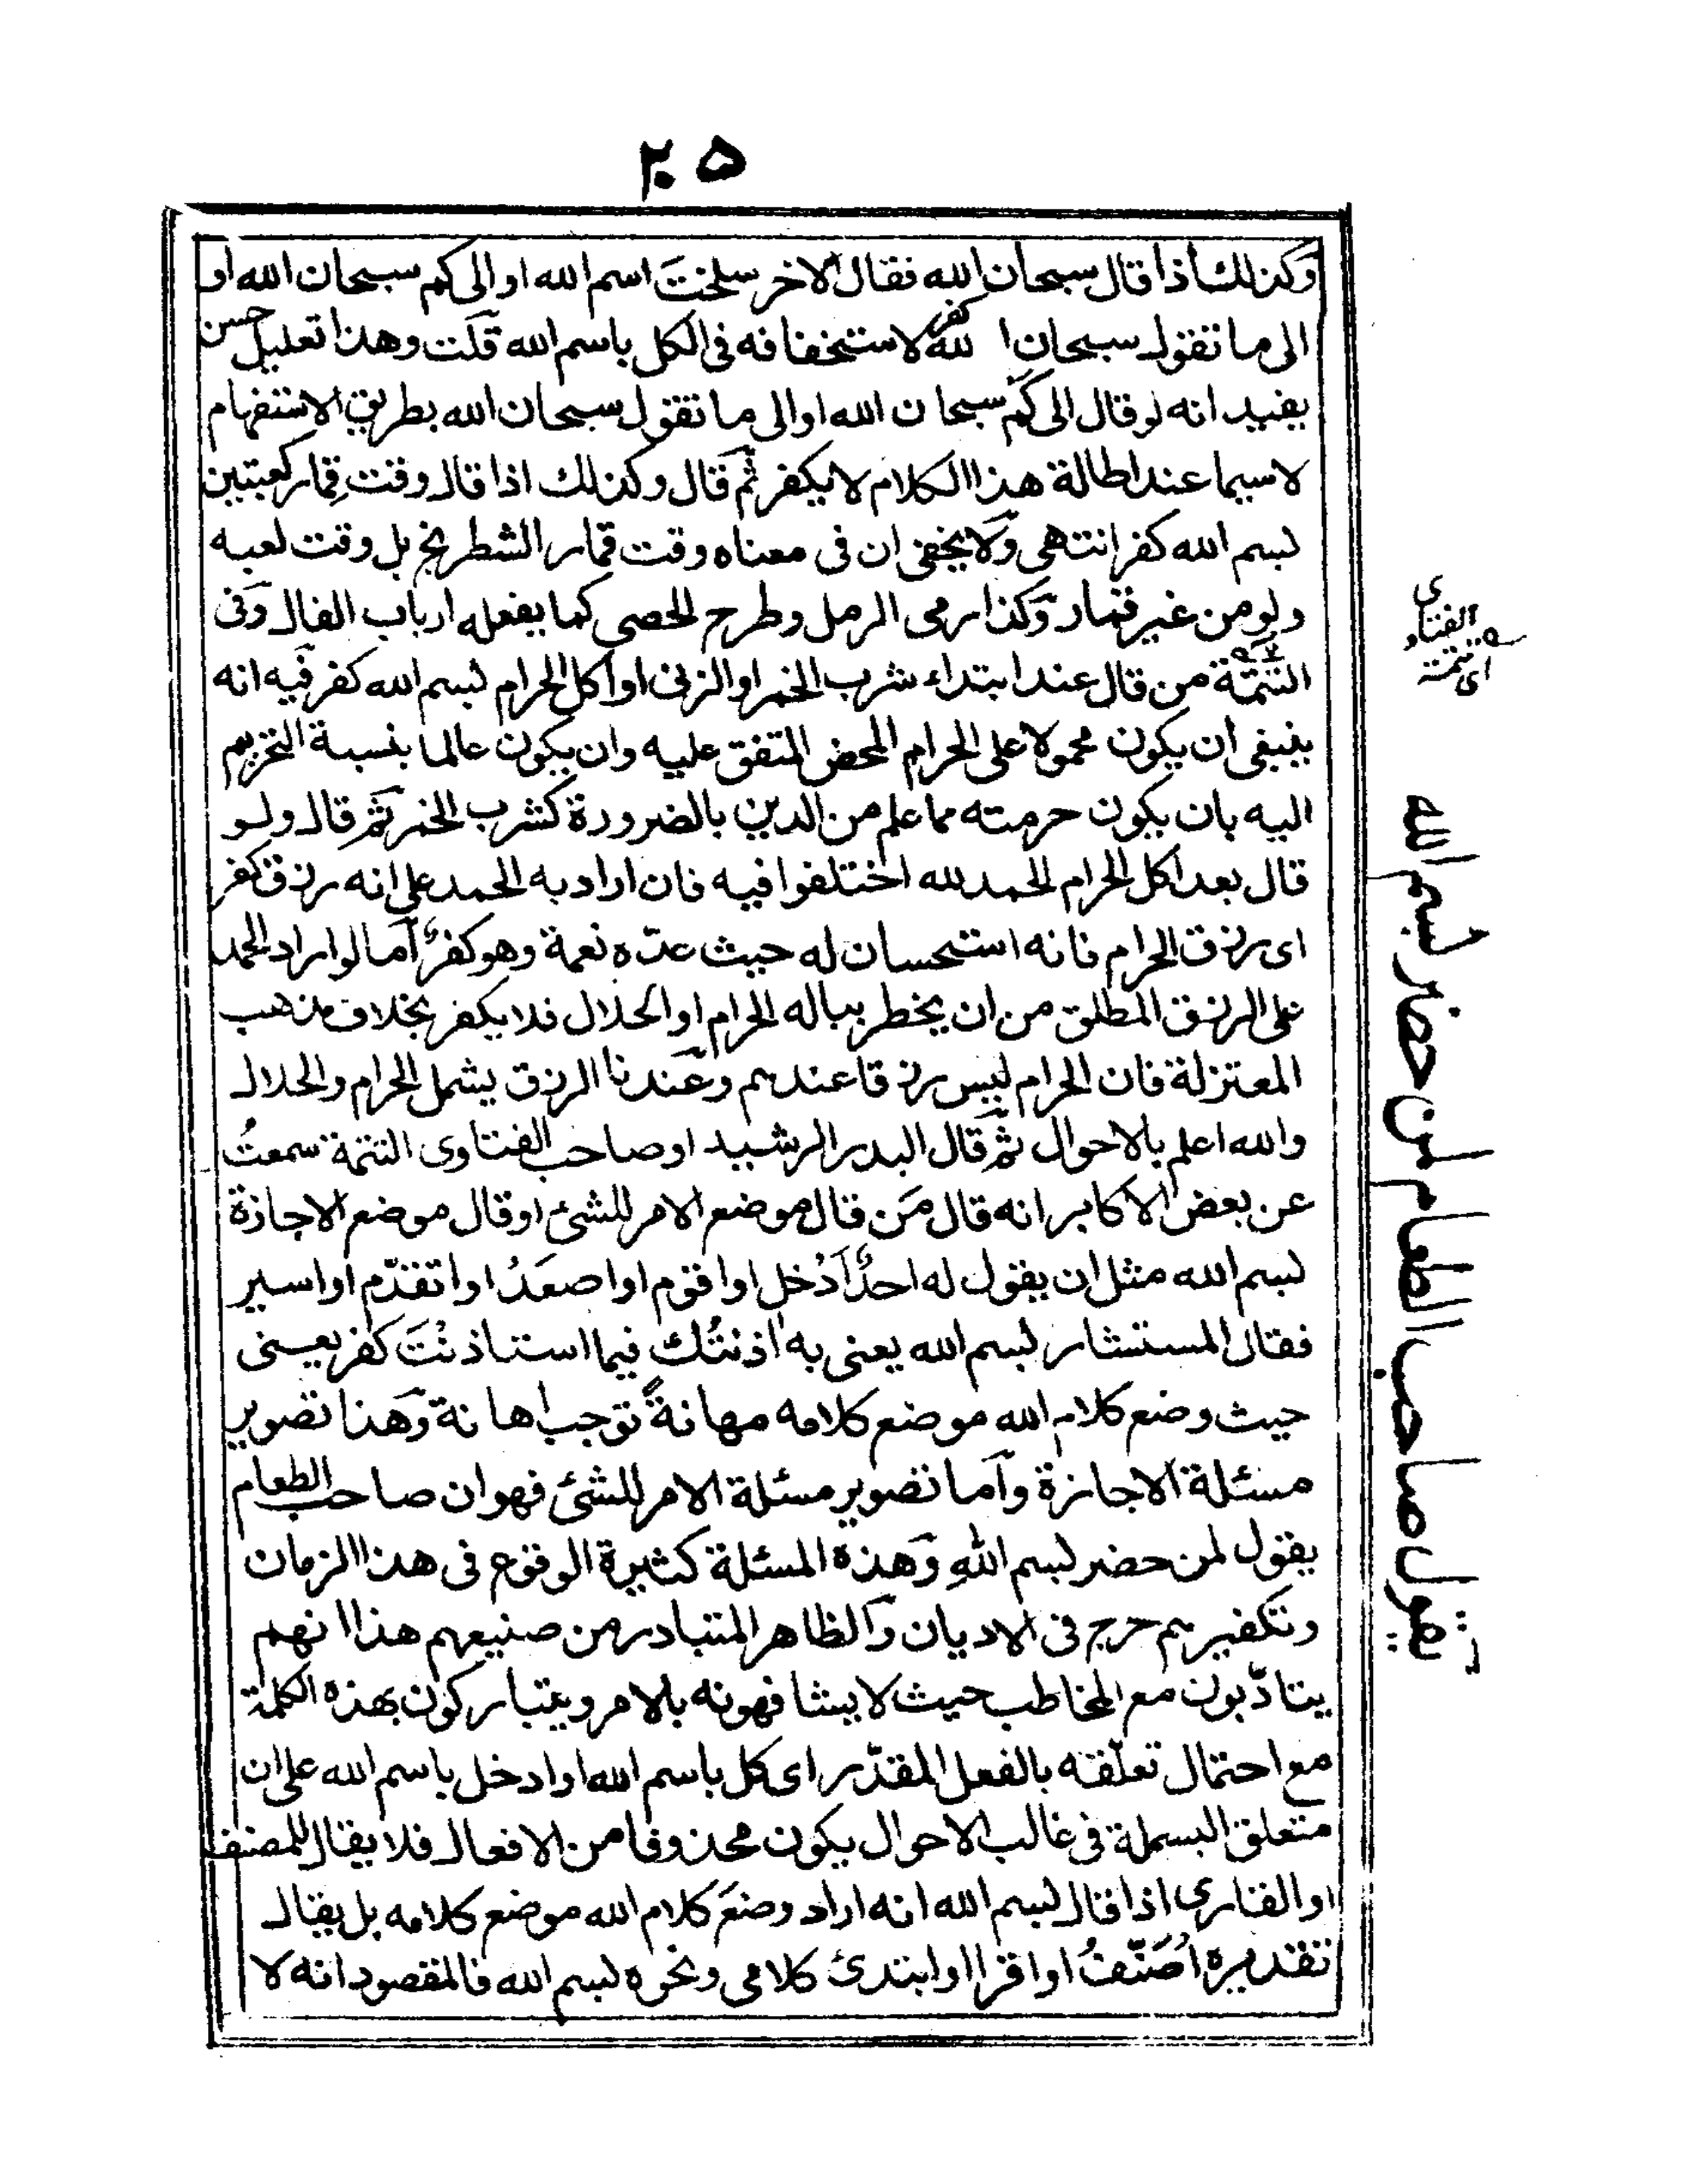 ٢٠٥
وكذلك اذا قال سبحان الله فقال الاخر سلخت اسم الله او الى كم سبحان الله او
الى ما تقول سبحان الله كفر لاستخفافه فى الكل باسم الله قلت وهذا تعليل حسن
يفيد انه لو قال الى كم سبحان الله او الى ما تقول سبحان الله بطريق الاستفهام
لا سيما عند اطالة هذا الكلام لا يكفر ثم قال وكذلك اذا قال وقت قمار كعبتين
بسم الله كفر انتهى ولا يخفى ان فى معناه وقت قمار الشطرنج بل وقت لعبه
ولو من غير قمار وكذا رمى الرمل وطرح الحصى كما يفعله ارباب الفال وفى
التتمّة من قال عند ابتداء شرب الخمر او الزنى او اكل الحرام بسم الله كفر فيه انه
ينبغى ان يكون محمولا على الحرام المحض المتفق عليه وان يكون عالما بنسبة التحريم
اليه بان يكون حرمته مما علم من الدين بالضرورة كشرب الخمر ثم قال ولو
قال بعد اكل الحرام الحمد لله اختلفوا فيه فان اراد به الحمد على انه رزق كفر
اى رزق الحرام فانه استحسان له حيث عدّه نعمة وهو كفرٌ اما لو اراد الحمد
على الرزق المطلق من ان يخطر بباله الحرام او الحلال فلا يكفر بخلاف مذهب
المعتزلة فان الحرام ليس رزقا عندهم وعندنا الرزق يشمل الحرام والحلال
والله اعلم بالاحوال ثم قال البدر الرشيد او صاحب الفتاوى التتمة سمعتُ
عن بعض الاكابر انه قال مَن قال موضع الامر للشئ او قال موضع الاجازة
بسم الله مثل ان يقول له احدٌ اَدْخل او اقوم او اصعَدُ او اتقدّم او اسير
فقال المستشار بسم الله يعنى به اذنتُك فيما استاذنْتَ كفر يعنى
حيث وضع كلام الله موضع كلامه مهانةً توجب اهانة وهذا تصوير
مسئلة الاجازة واما تصوير مسئلة الامر للشئ فهو ان صاحب الطعام
يقول لمن حضر بسم اللهِ وهذه المسئلة كثيرة الوقوع فى هذا الزمان
وتكفيرهم حرج فى الاديان والظاهر المتبادر من صنيعهم هذا انهم
يتادّبون مع المخاطب حيث لا يشافهونه بالامر ويتباركون بهذه الكلمة
مع احتمال تعلّقه بالفعل المقدّر اى كل باسم الله او ادخل باسم الله على ان
متعلق البسملة فى غالب الاحوال يكون محذوفا من الافعال فلا يقال للمصنف
او القارى اذا قال بسم الله انه اراد وضعَ كلام الله موضع كلامه بل يقال
تقديره اُصَنّفُ او اقرا او ابتدئ كلامى ونحوه بسم الله فالمقصود انه لا
اى تتمة
الفتاوى
يقول صاحب الطعام لمن حضر بسم الله